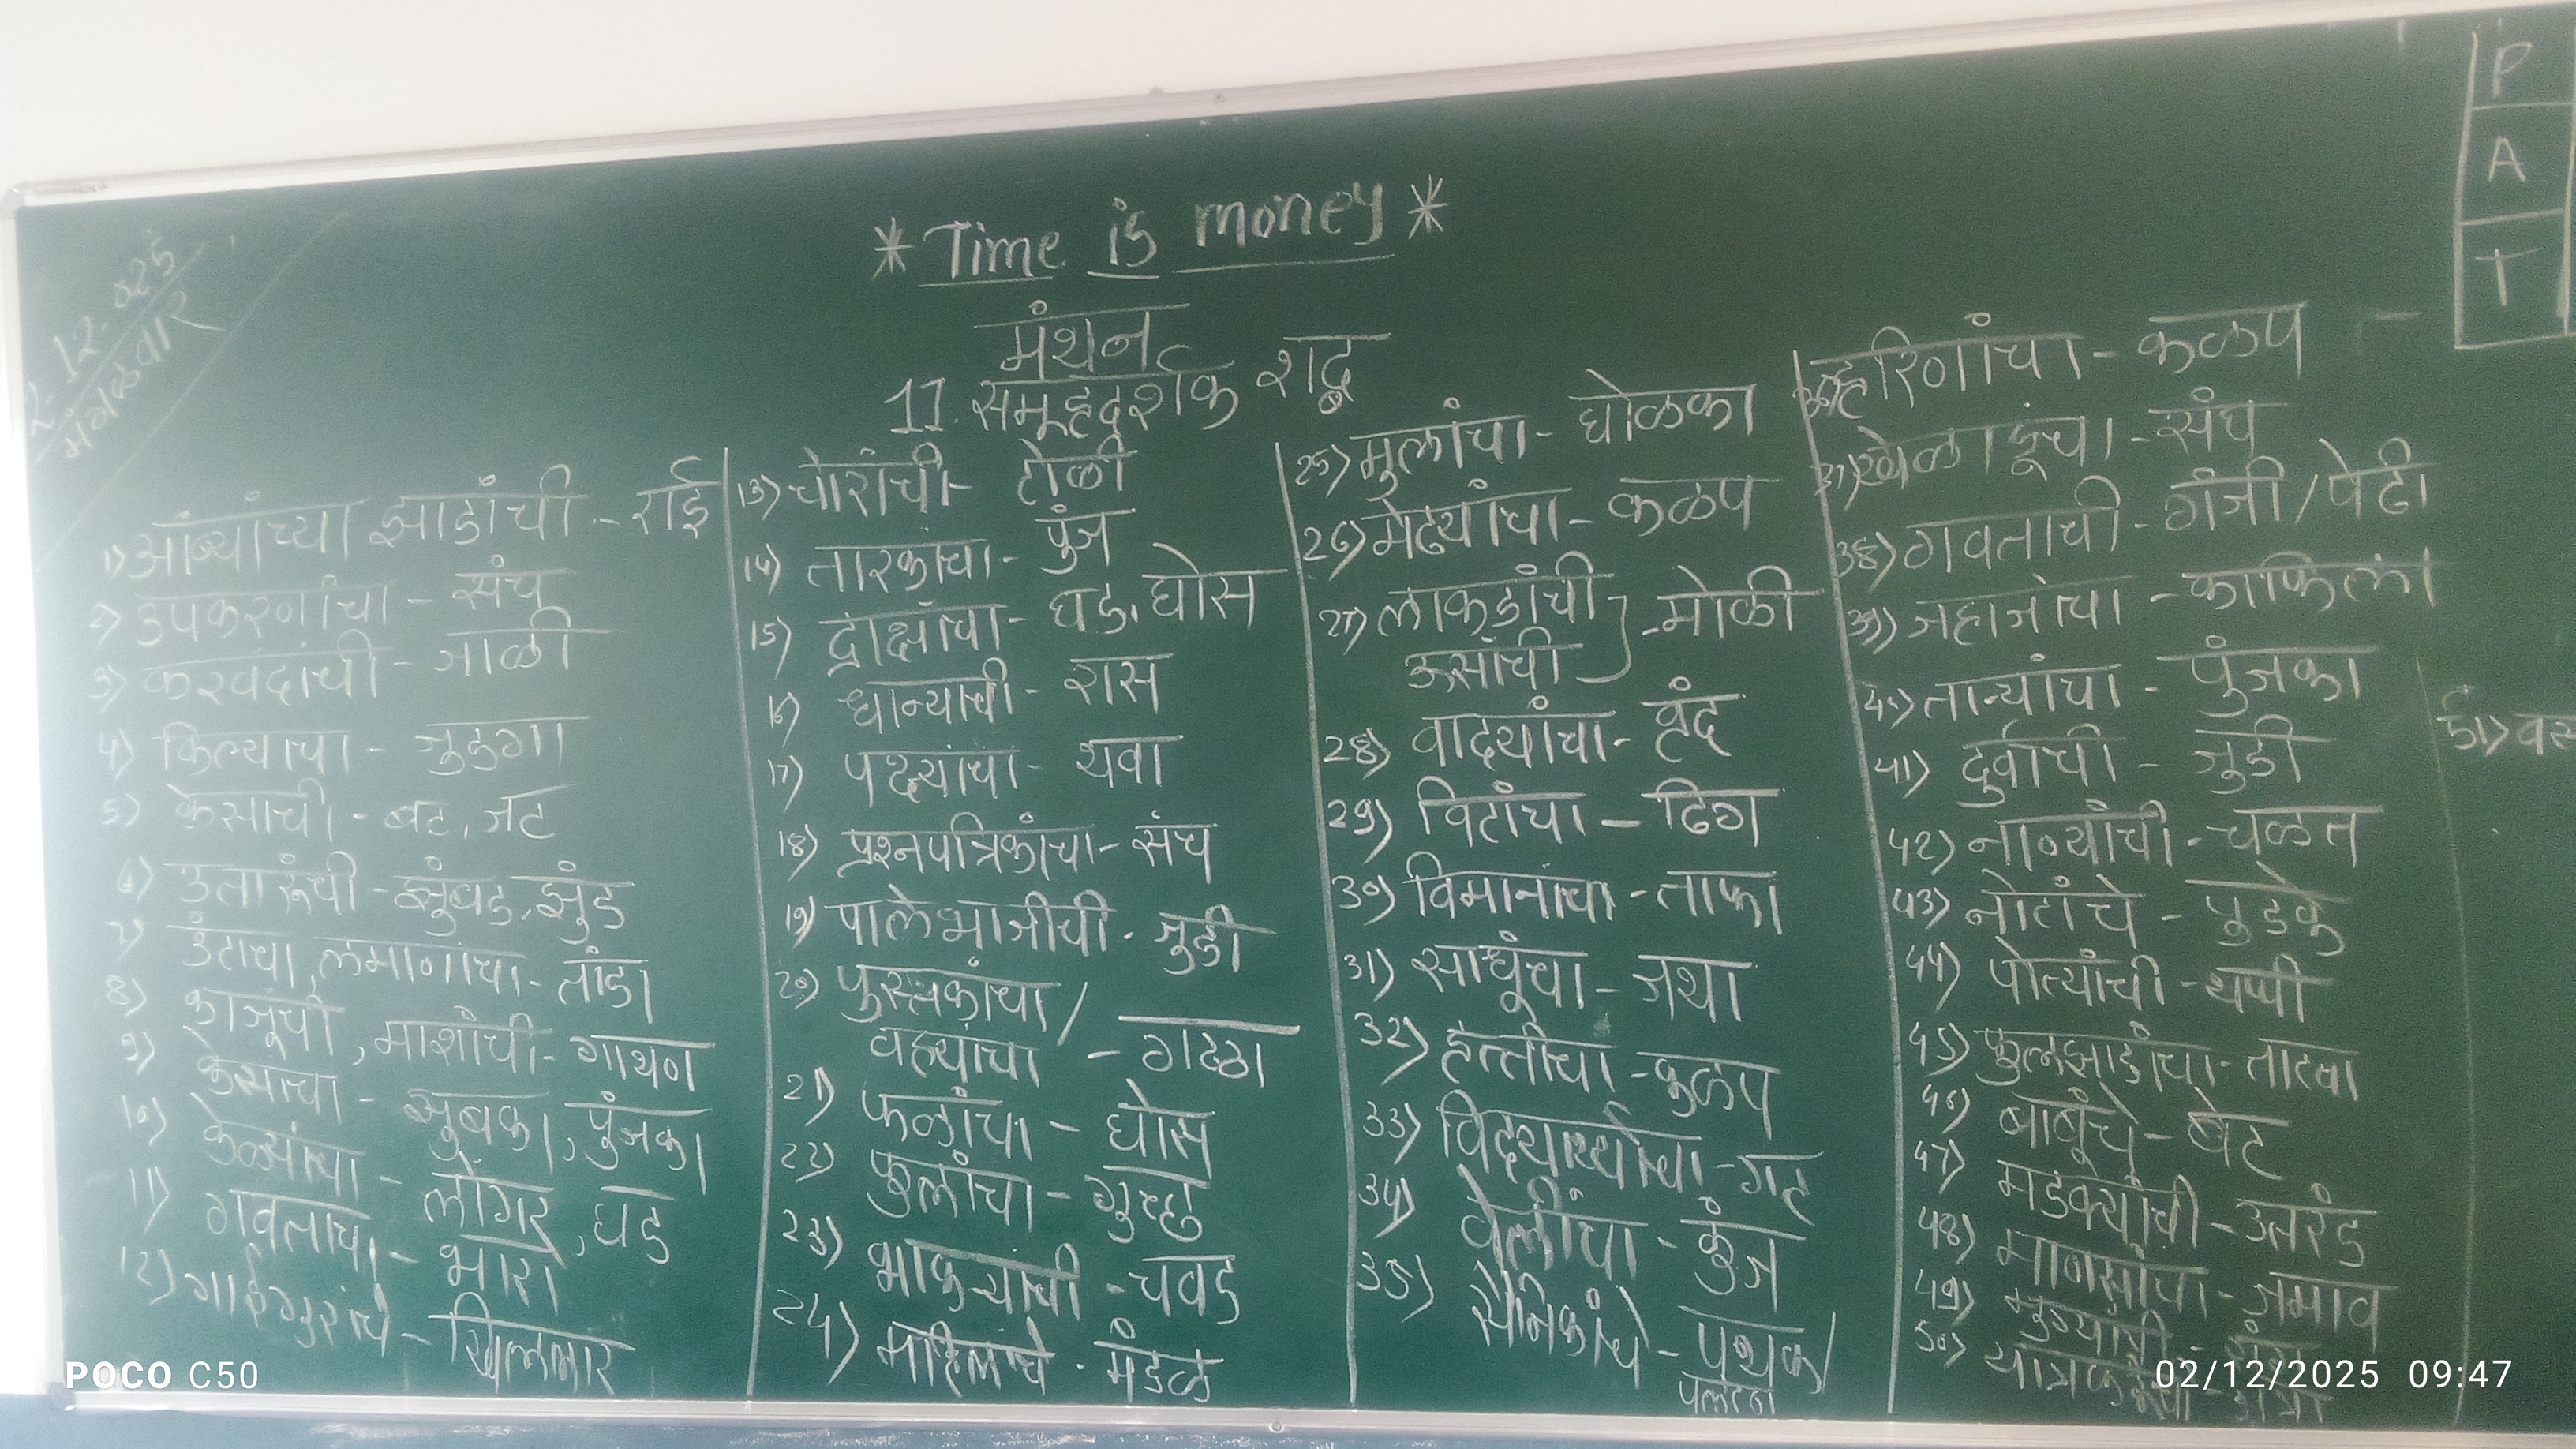 2-12-025
मंगळवार
* Time is money *
मंथन
11. समूहदर्शक शब्द
1) आंब्यांच्या झाडांची - राई
2) उपकरणांचा - संच
3) करवंदांची - जाळी
4) किल्यांचा - जुडगा
5) केसांची - बट, जट
6) उतारूंची - झुंबड, झुंड
7) उंटाचा, लमाणांचा - तांडा
8) काजूंची, माशांची - गाथण
9) केसांचा - झुबका, पुंजका
10) केळ्यांचा - लोंगर, घड
11) गवताचा - भारा
12) गाईगुरांचे - खिल्लार
13) चोरांची - टोळी
14) तारकांचा - पुंज
15) द्राक्षांचा - घड, घोस
16) धान्याची - रास
17) पक्ष्यांचा - थवा
18) प्रश्नपत्रिकांचा - संच
19) पालेभाजीची - जुडी
20) पुस्तकांचा /
वह्यांचा - गठ्ठा
21) फळांचा - घोस
22) फुलांचा - गुच्छ
23) भाकऱ्यांची - चवड
24) महिलांचे - मंडळ
25) मुलांचा - घोळका
26) मेंढ्यांचा - कळप
27) लाकडांची
ऊसांची } - मोळी
28) वाद्यांचा - वृंद
29) विटांचा - ढिग
30) विमानांचा - ताफा
31) साधूंचा - जथा
32) हत्तींचा - कळप
33) विद्यार्थ्यांचा - गट
34) वेलींचा - कुंज
35) सैनिकांचे - पथक/
पलटण
36) हरिणांचा - कळप
37) खेळाडूंचा - संघ
38) गवताची - गंजी/पेंढी
39) जहाजांचा - काफिला
40) ताऱ्यांचा - पुंजका
41) दुर्वांची - जुडी
42) नाण्यांची - चळत
43) नोटांचे - पुडके
44) पोत्यांची - थप्पी
45) फुलझाडांचा - ताटवा
46) बांबूंचे - बेट
47) मडक्यांची - उतरंड
48) माणसांचा - जमाव
49) मुंग्यांची -
50)
51)
P
A
T
POCO C50
02/12/2025 09:47